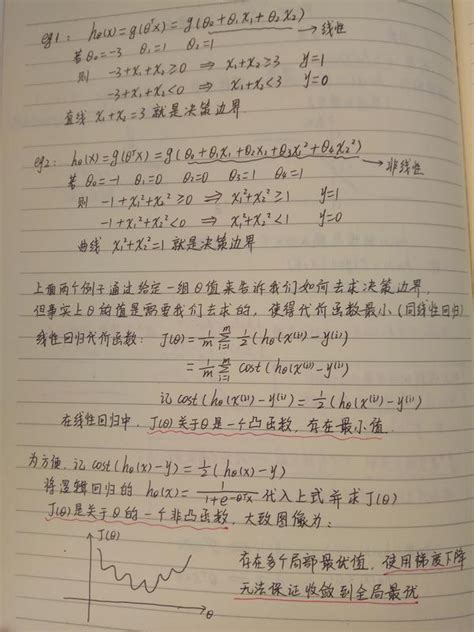 eg1: hθ(x)=g(θᵀx)=g(θ₀+θ₁x₁+θ₂x₂) → 线性
若 θ₀=-3 θ₁=1 θ₂=1
则 -3+x₁+x₂≥0 ⇒ x₁+x₂≥3 y=1
-3+x₁+x₂<0 ⇒ x₁+x₂<3 y=0
直线 x₁+x₂=3 就是决策边界
eg2: hθ(x)=g(θᵀx)=g(θ₀+θ₁x₁+θ₂x₂+θ₃x₁²+θ₄x₂²) → 非线性
若 θ₀=-1 θ₁=0 θ₂=0 θ₃=1 θ₄=1
则 -1+x₁²+x₂²≥0 ⇒ x₁²+x₂²≥1 y=1
-1+x₁²+x₂²<0 ⇒ x₁²+x₂²<1 y=0
曲线 x₁²+x₂²=1 就是决策边界
上面两个例子通过给定一组θ值来告诉我们如何去求决策边界,
但事实上θ的值是需要我们去求的, 使得代价函数最小(同线性回归)
线性回归代价函数: J(θ)=1/m Σᵢ₌₁ᵐ 1/2(hθ(x⁽ⁱ⁾-y⁽ⁱ⁾)
=1/m Σᵢ₌₁ᵐ cost(hθ(x⁽ⁱ⁾-y⁽ⁱ⁾)
记 cost(hθ(x⁽ⁱ⁾-y⁽ⁱ⁾)=1/2(hθ(x⁽ⁱ⁾-y⁽ⁱ⁾)
在线性回归中, J(θ)关于θ是一个凸函数, 存在最小值.
为方便, 记 cost(hθ(x)-y)=1/2(hθ(x)-y)
将逻辑回归的 hθ(x)=1/(1+e^-θᵀx) 代入上式并求J(θ)
J(θ)是关于θ的一个非凸函数, 大致图像为:
J(θ)
存在多个局部最优值, 使用梯度下降
无法保证收敛到全局最优
θ